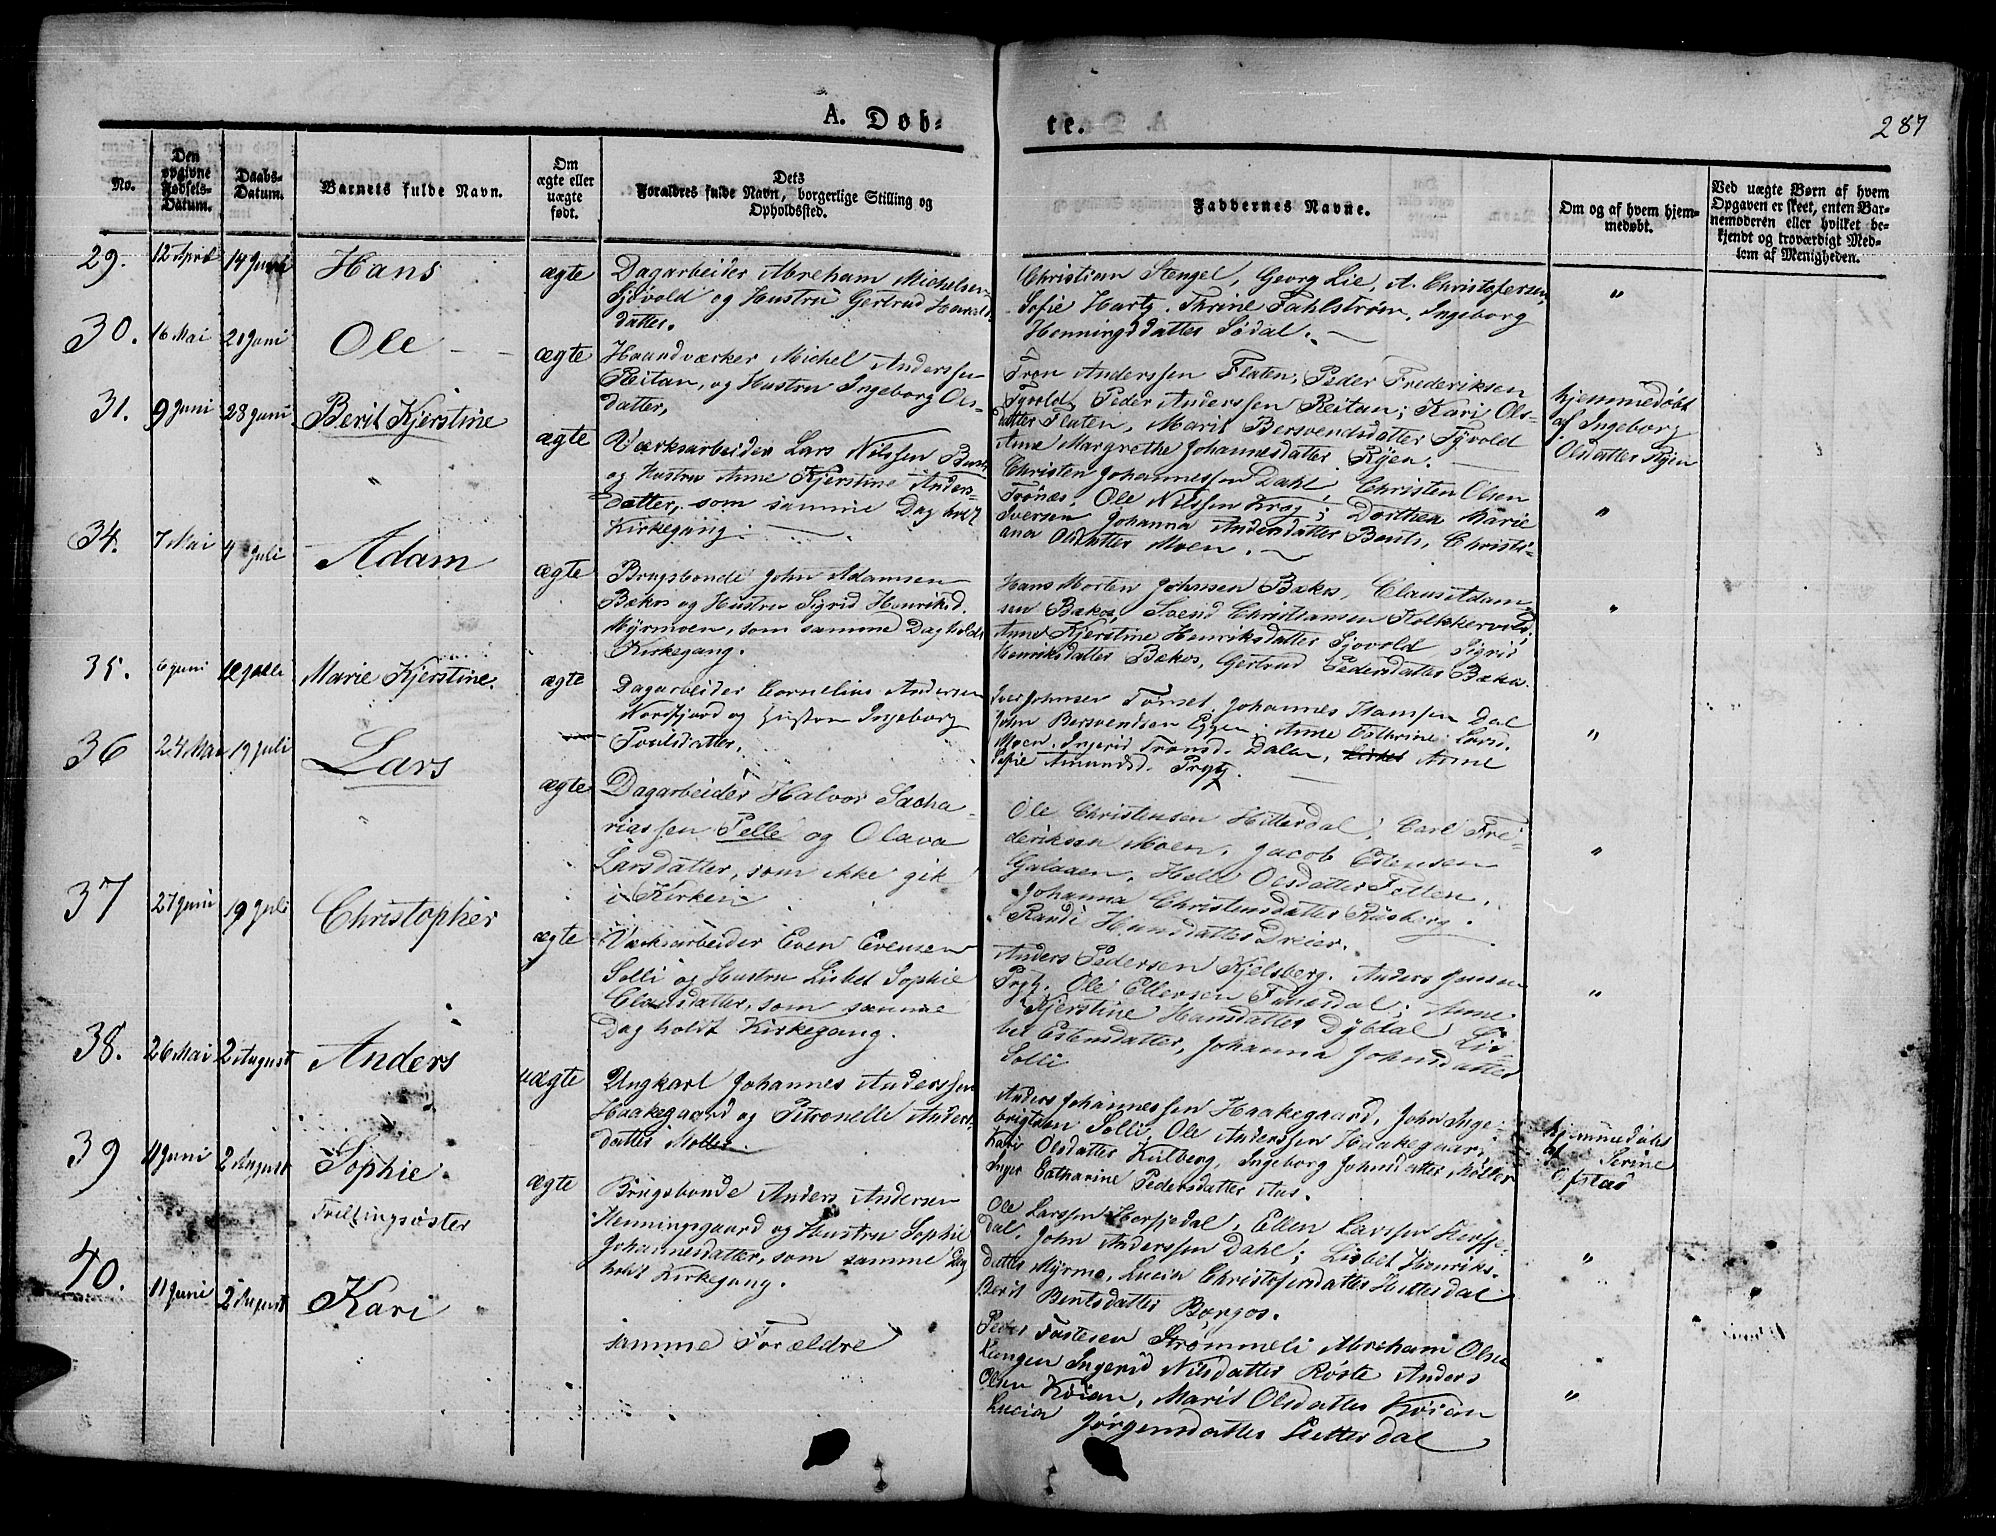 A. Døb-
te.
287
No.
Den
opgivne
Fødsels-
Datum.
Daabs-
Datum.
Barnets fulde Navn.
Om
ægte eller
uægte
født.
Dets
Forældres fulde Navn, borgerlige Stilling og
Opholdssted.
Faddernes Navne.
Om og af hvem hjem-
medøbt.
Ved uægte Børn af hvem
Opgaven er skeet, enten Bar-
nemoderen eller hvilket be-
kjendt og troværdigt Med-
lem af Menigheden.
29.
12 April
14 Juni
Hans
ægte
Dagarbeider Abreham Michelsen
Sjøvold og Hustru Gertrud Haralds
datter.
Christian Stengel, Georg Lie, A. Christofersen
Sofie Hartz. Thrine Fahlstrøm, Ingeborg
Henningsdatter Sødal.
"
30.
16 Mai
21 Juni
Ole
ægte
Haandværker Michel Anderssen
Reitan, og Hustru Ingeborg Ols-
datter,
Tron Anderssen Flaten, Peder Frederiksen
Tyvold, Peder Anderssen Reitan; Kari Ols-
datter Flaten, Marit Bersvendsdatter Tyvold
Anne Margrethe Johannesdatter Ryen.
31.
9 Juni
28 Juni
Berit Kjerstine
ægte
Værksarbeider Lars Nilssen
og Hustru Anne Kjerstine Anders-
datter, som samme Dag holdt
Kirkegang.
Christen Johannessen Dahl, Christen Olsen
Trønæs, Ole Nilssen Krog; Dorthea Marie
Iversen Johanna Andersdatter Bents, Christi-
ana Olsdatter Moen.
hjemmedøbt
af Ingeborg
Olsdatter Ryen
"
34.
7 Mai
4 Juli
Adam
ægte
Brugsbonde John Adamsen
Bækos og Hustru Sigrid Henriksd.
Myrmoen, som samme Dag holdt
Kirkegang.
Hans Morten Johnsen Bækos, Claus Adam-
sen Bækos, Svend Christiansen Kolkkervold;
Anne Kjerstine Henriksdatter Sjøvold Sigrid
Henriksdatter Bækos, Gertrud Pedersdatter Bækos.
"
35.
6 Juni
Juli
Marie Kjerstine.
ægte
Dagarbeider Cornelius Andersen
Nordfjord og Hustru Ingeborg
Poulsdatter.
Iver Johnsen Tønset, Johannes Hansen Dal
John Bersvendsen Eggen; Anne Cathrine Larsd.
Moen, Ingerid Tronsd. Dalen, Anne
Sofie Amundsd. Prytz.
"
36
24 Mai
19 Juli
Lars
ægte
Dagarbeider Halvor Sacha
riassen Pelle og Olava
Larsdatter, som ikke gik
i Kirken
Ole Christensen Hitterdal, Carl Fre-
deriksen Moen, Jacob Estensen
Galaaen, Helle Olsdatter Tollen,
Johanna Christensdatter Rusberg.
Randi Hansdatter Dreier.
"
37
27 Juni
19 Juli
Christopher
ægte
Værksarbeider Even Evensen
Solli og Hustru Lisbet Sophie
Clausdatter, som samme
Dag holdt Kirkegang.
Anders Pedersen Kjelsberg, Anders Jensen
Prytz, Ole Ellersen Funesdal; Anne
Kjerstine Hansdatter Dybdal, Lis-
bet Estensdatter, Johanna Johnsdatter
Solli
"
38.
26 Mai
2 August
Anders
uægte
Ungkarl Johannes Anderssen
Haakegaard og Petronelle Anders-
datter Møller
Anders Johannessen Haakegaard, John Inge-
brigtsen Solli, Ole Anderssen Haakegaard;
Kari Olsdatter Kulberg, Ingeborg Johnsdatter Møller
Inger Catharine Pedersdatter Aas.
hjemmedøbt
af Serine
Efstas
39
11 Juni
2 August
Sophie
Tvillingsøster
ægte
Brugsbonde Anders Andersen
Henningsgaard og Hustru Sophie
Johannesdatter, som samme Dag
holdt Kirkegang.
Ole Larssen Herjedal, Ellen Larssen Herje-
dal, John Anderssen Dahl; Lisbet Henriks-
datter Myrmo, Lucia Christofersdatter Hitterdal
Berit Bentsdatter Borgos.
"
40.
11 Juni
2 August
Kari
samme Forældre
Peder Fastesen Strømmeli Abraham Olsen
Kongen Ingerid Nilsdatter Røste Anders
Olsen Køien, Marit Olsdatter Køien
Lucia Jørgensdatter Hitterdal
"